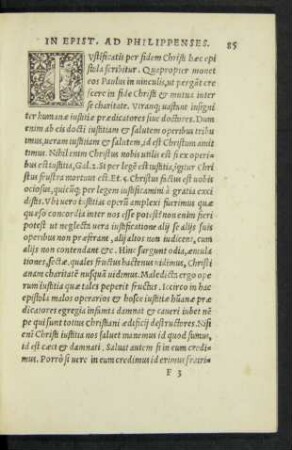 IN EPIST. AD PHILIPPENSES. 85
IVstificatis per fidem Christi hæc epi
stola scribitur. Quapropter monet
eos Paulus in uinculis, ut pergāt cre
scere in fide Christi & mutua inter
se charitate. Vtranque uastant insigni
ter humanæ iustitiæ prædicatores siue doctores. Dum
enim ab eis docti iustitiam & salutem operibus tribu
imus, ueram iustitiam & salutem, id est Christum amit
timus. Nihil enim Christus nobis utilis est si ex operi-
bus est iustitia, Gal. 2. Si per legē est iustitia, igitur Christ
stus frustra mortuus est. Et. 5. Christus factus est nobis
ociosus, quicūque per legem iustificamini à gratia excidi
distis. Vbi uero iustitia operū amplexi fuerimus quæ
quæso concordia inter nos esse potest? non enim fieri
potest ut neglecta uera iustificatione alij se alijs suis
operibus non præferant, alij alios non iudicent, cum
alijs non contendant &c. Hinc surgunt odia, æmula
tiones, sectæ, quales fructus hactenus uidimus, Christi
anam charitatē nusquā uidimus. Maledicta ergo ope
rum iustitia quæ tales peperit fructus. Iccirco in hac
epistola malos operarios & hosce iustitiæ hūanæ præ
dicatores egregia insimul damnat & caueri iubet ne
pe qui sunt totius christiani ædificij destructores. Nisi
enī Christi iustitia nos saluat manemus id quod sumus,
id est cæci & damnati. Saluat autem si in eum credi-
mus. Porrò si uere in eum credimus id erimus fratri-
F 3